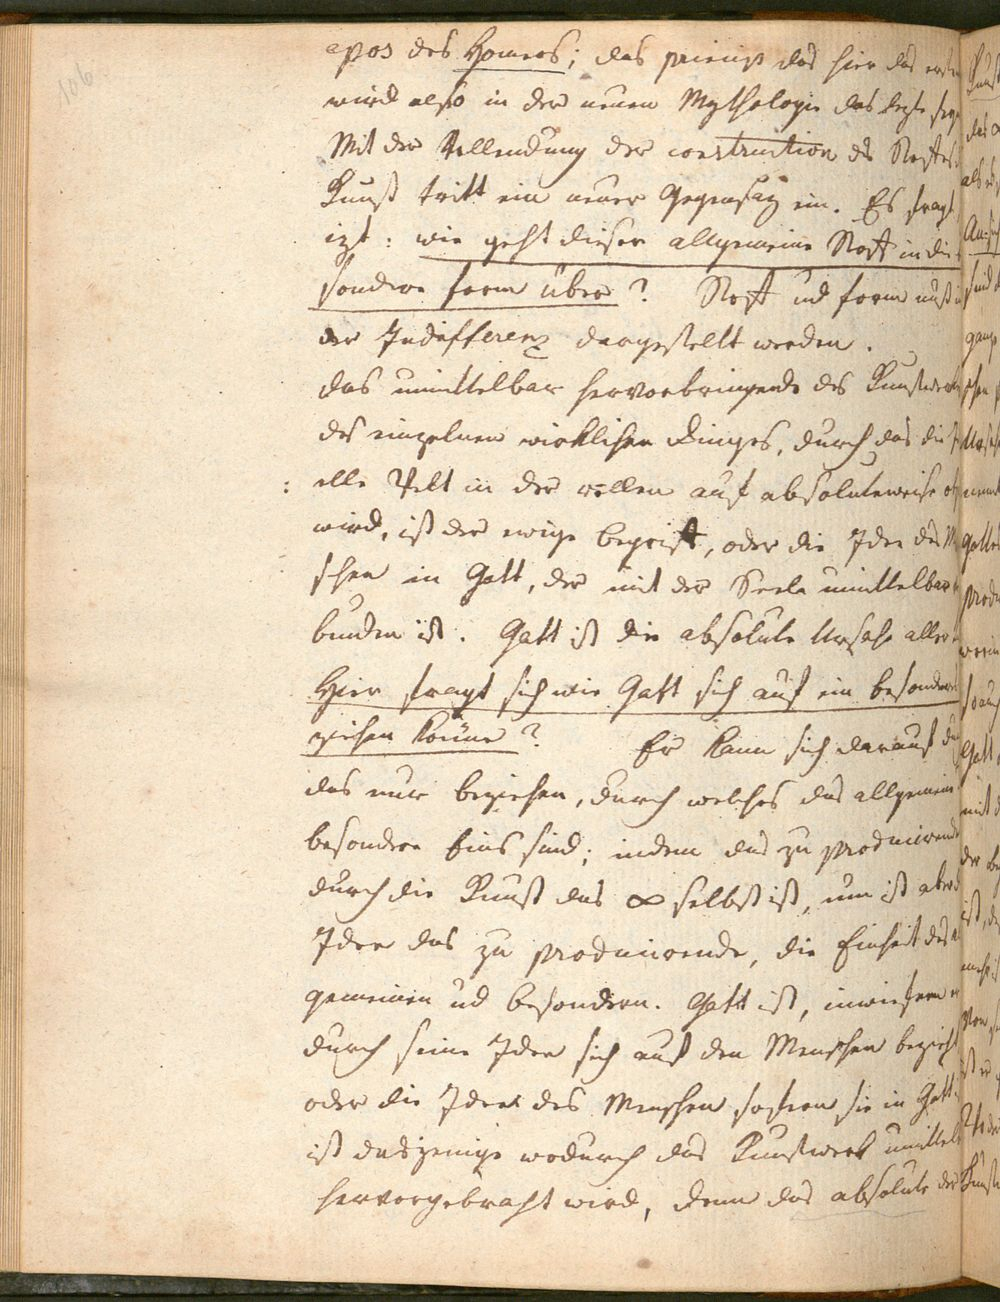 106
epos des Homers; das princip das hier das erste
wird also in der neuen Mythologie das lezte seyn
Mit der Vollendung der construction des Stoffes d
Kunst tritt ein neuer Gegensaz ein. Es fragt
izt: wie geht dieser allgemeine Stoff in die
sondere form über? Stoff und form muß in
der Indifferenz dargestellt werden.
das unmittelbar hervorbringende des Kunstwerks
des einzelnen wirklichen Dinges, durch das die
elle Welt in der reellen auf absoluteweise
wird, ist der ewige begriff, oder die Idee des M
schen in Gott, der mit der Seele unmittelbar
bunden ist. Gott ist die absolute Ursache aller
Hier fragt sich wie Gott sich auf ein besonderes
ziehen könne? Er kann sich darauf
das nur beziehen, durch welches das allgemeine
besondere Eins sind; indem das zu producirende
durch die Kunst das ∞ selbst ist, nun ist aber
Idee das zu producirende, die Einheit des
gemeinen ud besondern. Gott ist, inwiefern er
durch seine Idee sich auf den Menschen bezieht
oder die Idee des Menschen sofern sie in Gott
ist dasjenige wodurch das Kunstwerk unmittelb
hervorgebracht wird, denn das absolute der